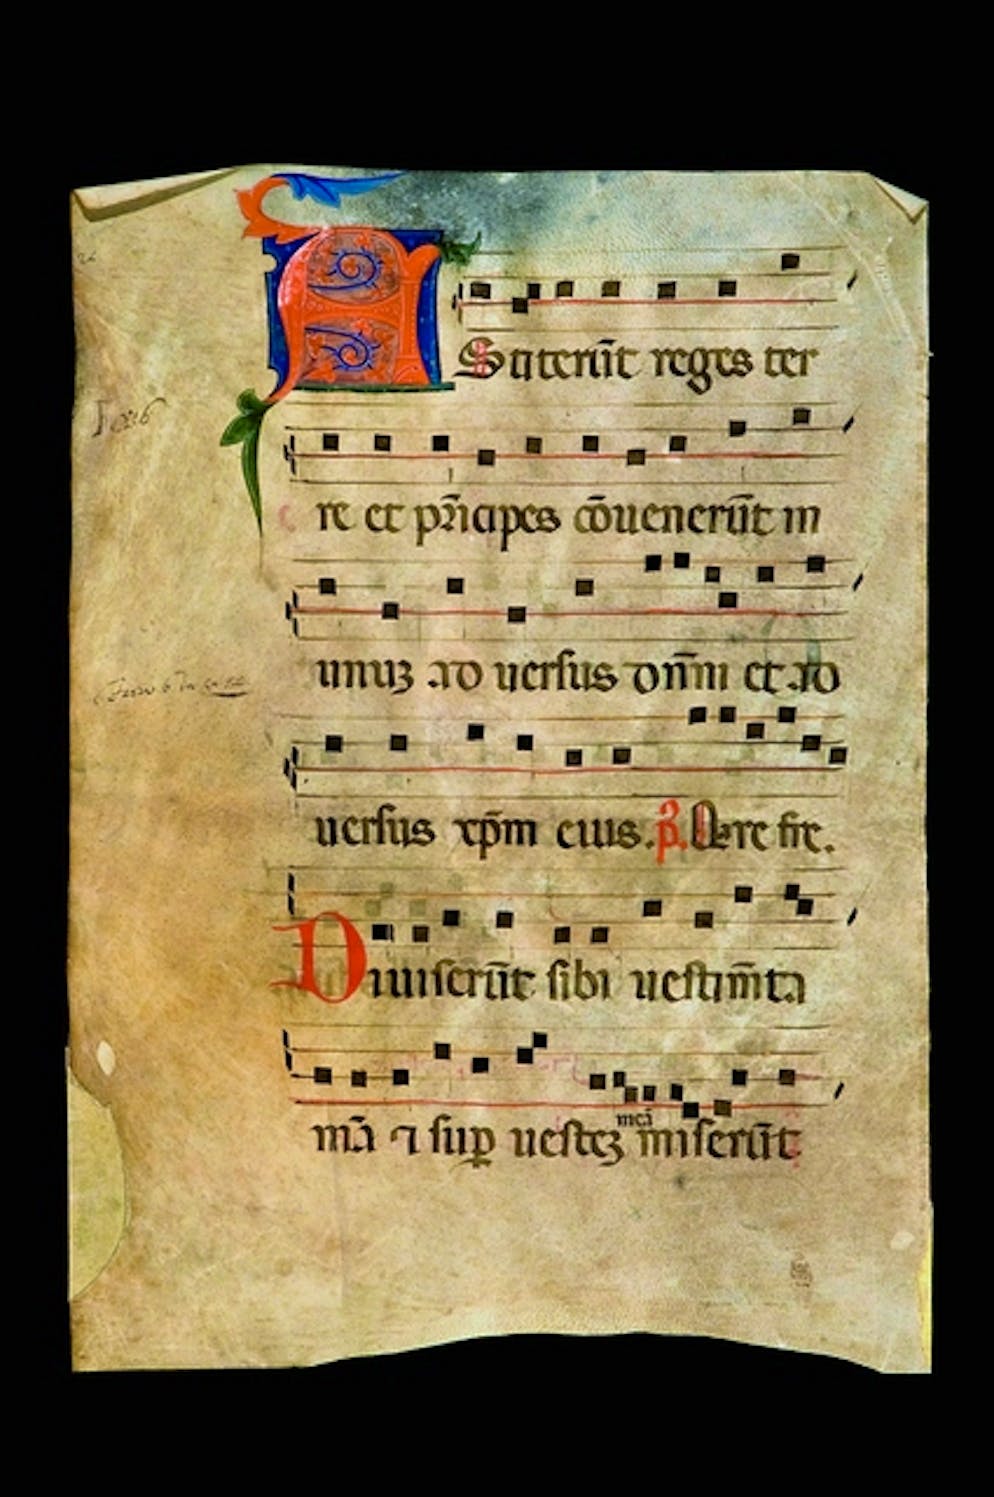 AStiterūt reges ter
re et pⁿcipes ꝯ̄uenerūt in
unuz ad uersus dnm̄ et ad
uersus xp̄m eius. p̄. Q̄re fre.
Diuiserūt sibi uestim̄ta
mā ⁊ suꝑ uestez meā miserūt